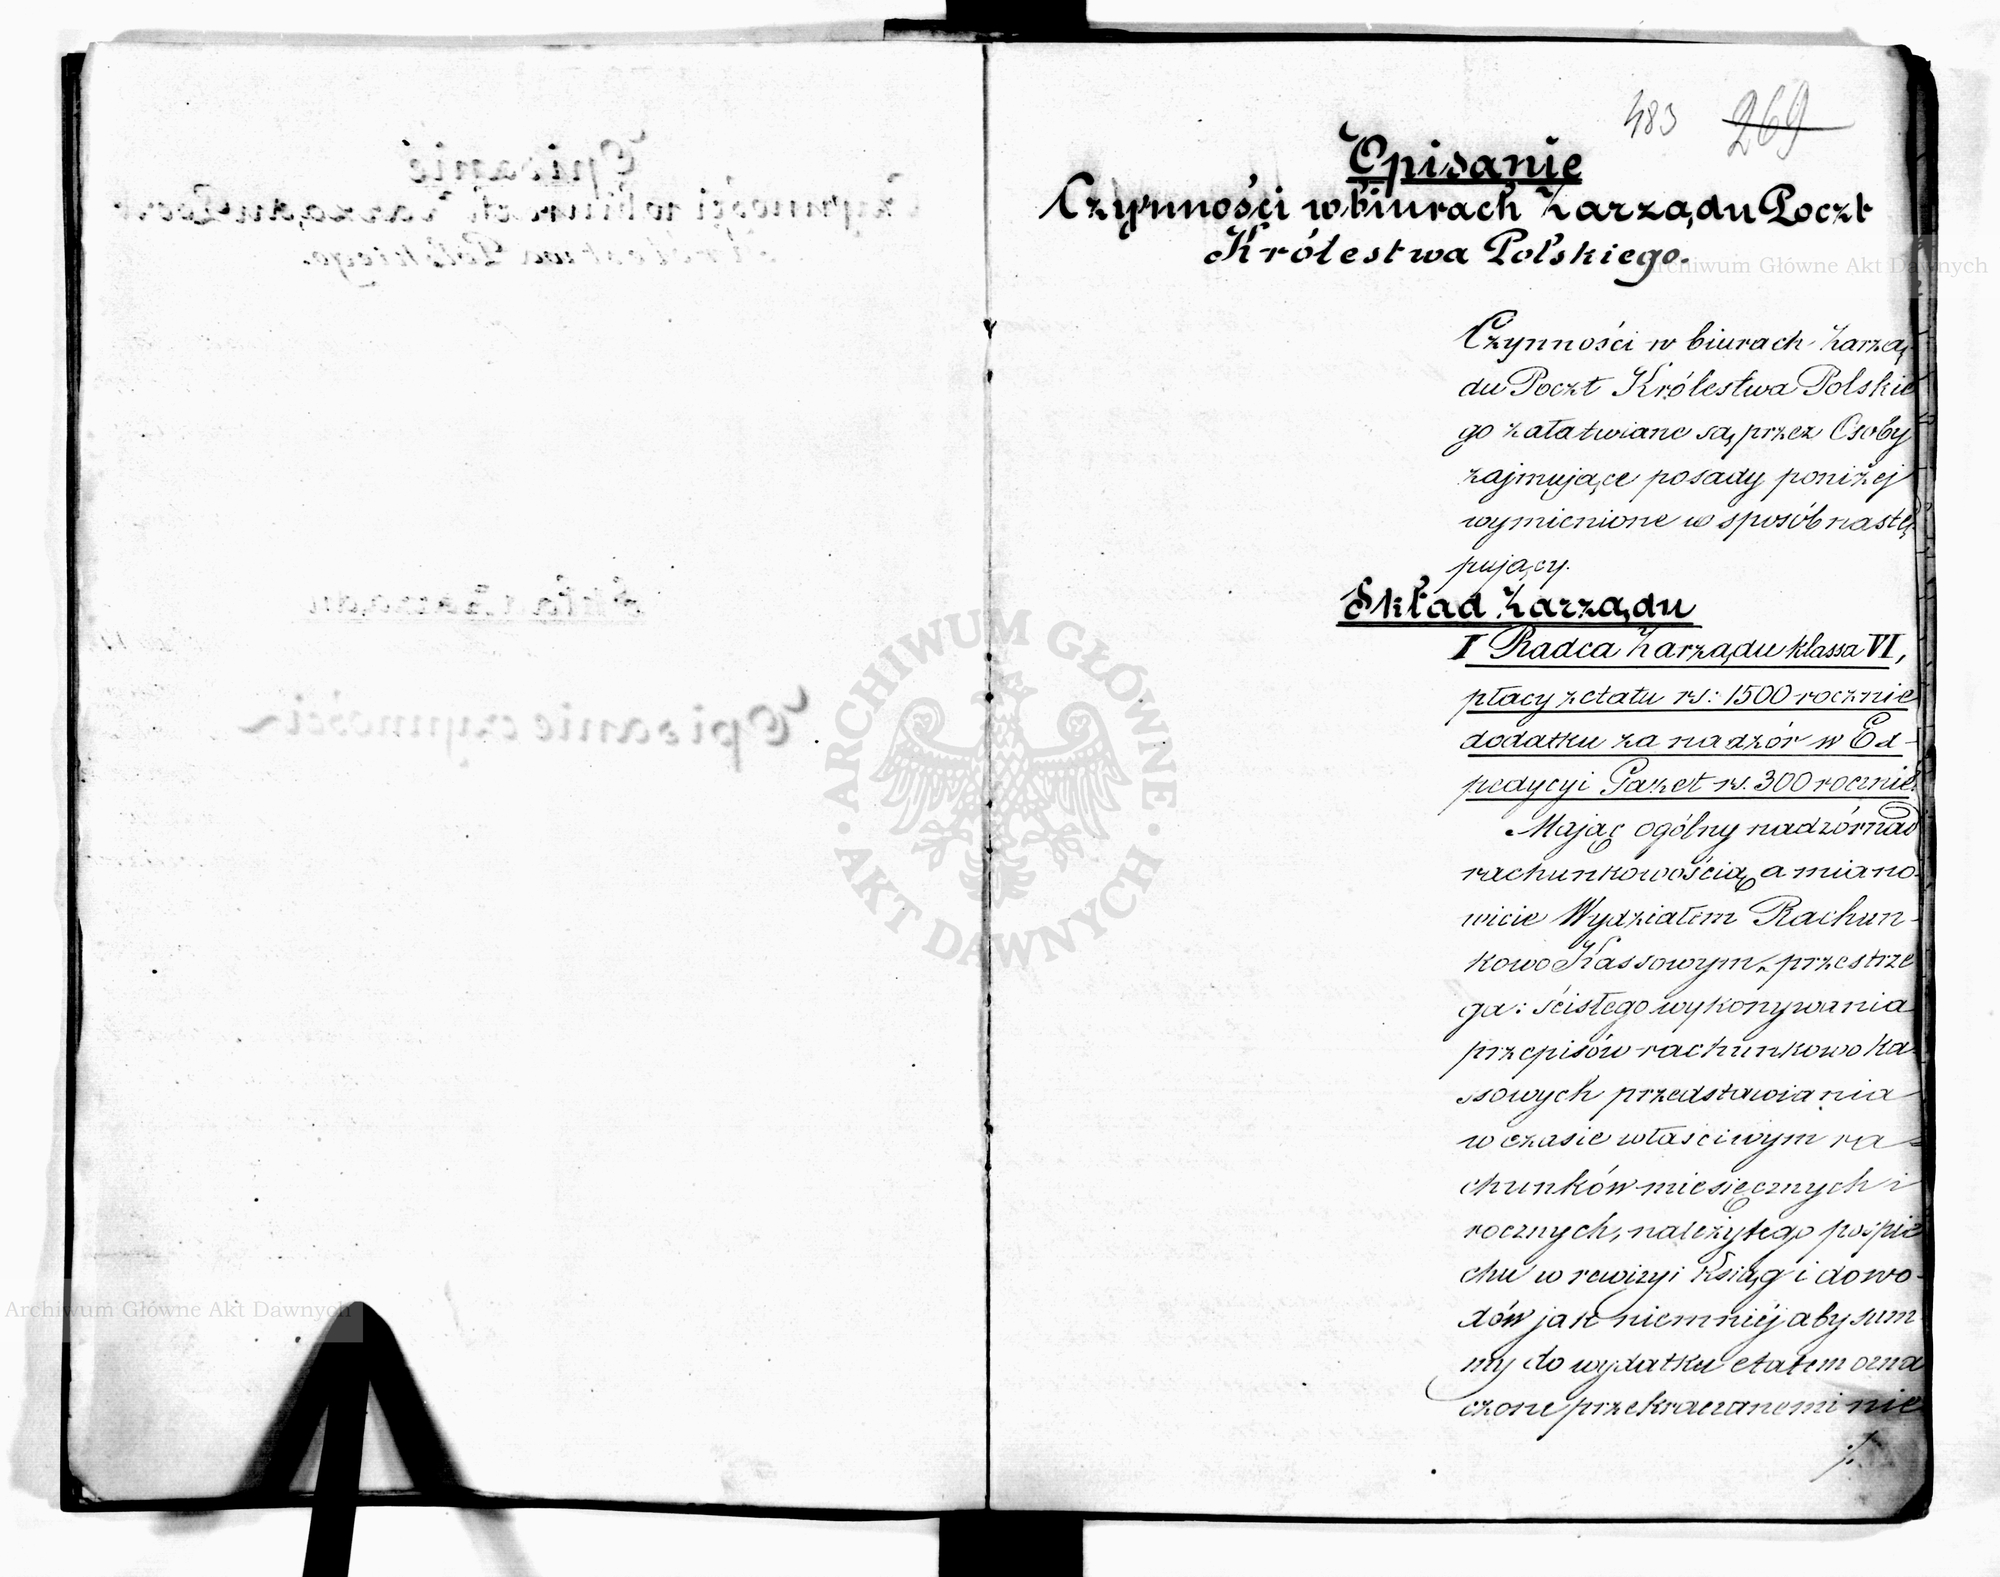 483 269
Opisanie
Czynności w biurach Zarządu Poczt
Królestwa Polskiego.
Czynności w biurach Zarzą
du Poczt Królestwa Polskie
go załatwiane są przez Osoby
zajmujące posady poniżej
wymienione w sposób nastę
pujący.
Skład Zarządu
I Radca Zarządu klassa VI,
płacy z etatu rs: 1500 rocznie
dodatku za nadzór w Ex-
pedycyi Gazet rs. 300 rocznie.
Mając ogólny nadzór nad
rachunkowością a miano-
wicie Wydziałem Rachun-
kowo Kassowym, przestrze
ga: ścisłego wykonywania
przepisów rachunkowo ka-
ssowych przedstawiania
w czasie właściwym ra-
chunków miesięcznych i
rocznych, należytego pośpie
chu w rewizyi Ksiąg i dowo-
dów jak niemniéj aby sum
my do wydatku etatem ozna
czone przekraczanemi nie
Archiwum Główne Akt Dawnych
Archiwum Główne Akt Dawnych
ARCHIWUM GŁÓWNE
AKT DAWNYCH